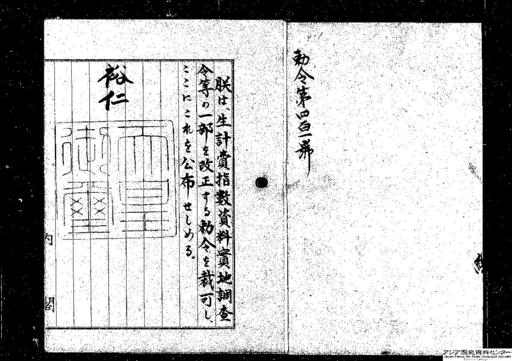 勅令第四百一號
朕は、生計費指數資料實地調査
令等の一部を改正する勅令を裁可し、
ここにこれを公布せしめる。
裕仁
天皇御璽
内閣
アジア歴史資料センター